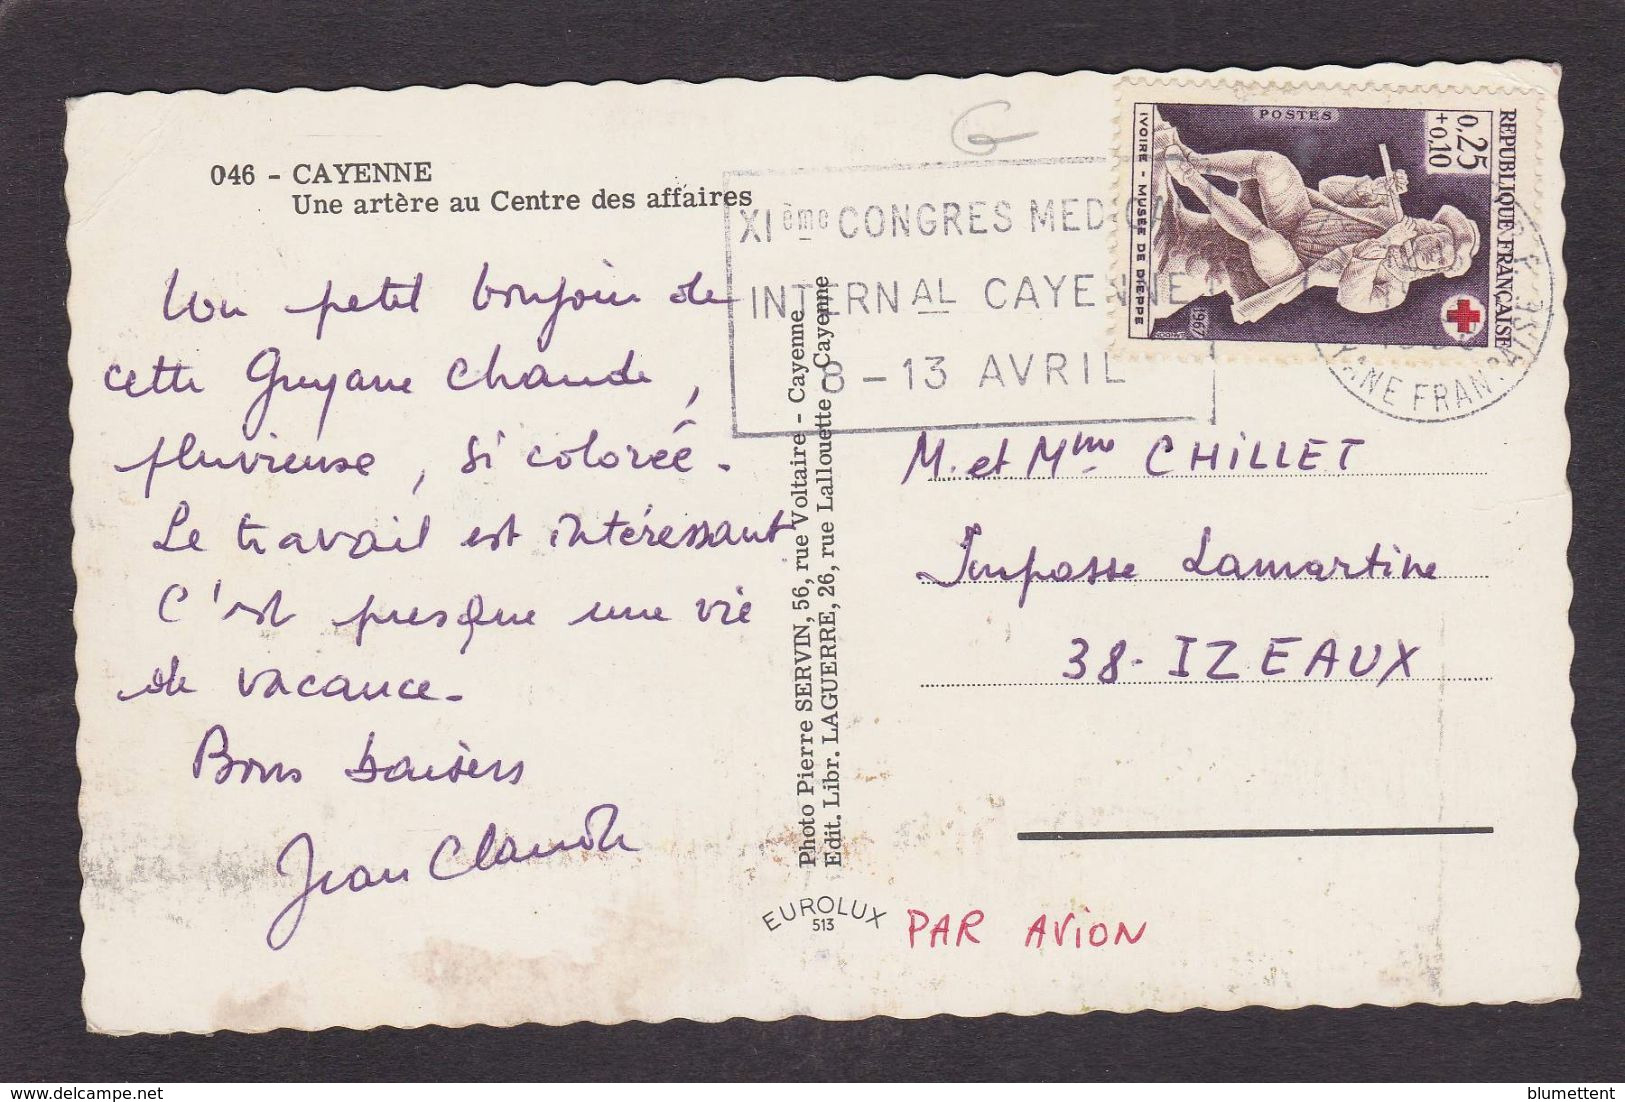 046 - CAYENNE
Une artère au Centre des affaires
Un petit bonjour de
cette Guyane chaude,
pluvieuse, si colorée.
Le travail est intéressant
C'est presque une vie
de vacance.
Bons baisers
Jean Claude
Photo Pierre SERVIN, 56, rue Voltaire - Cayenne
Edit. Libr. LAGUERRE, 26, rue Lallouette - Cayenne
EUROLUX
513
XIème CONGRES MEDICAL
INTERNAL CAYENNE
8 - 13 AVRIL
REPUBLIQUE FRANÇAISE
0,25
+0,10
POSTES
IVOIRE - MUSÉE DE DIEPPE
1967
M. et Mme CHILLET
Impasse Lamartine
38 - IZEAUX
PAR AVION
blumettent